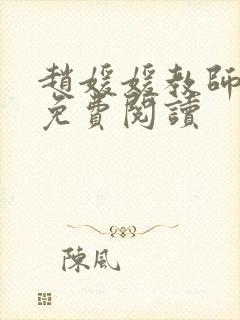 趙媛媛教師
免費閱讀
陳風